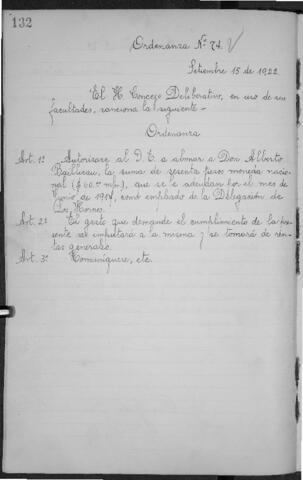 132
Ordenanza Nº 74.
Setiembre 15 de 1922
El H. Concejo Deliberativo, en uso de sus
facultades, sanciona la siguiente -
Ordenanza
Art. 1º Autorizase al D. E. a abonar a Don Alberto
la suma de sesenta pesos moneda nacio-
nal ($ 60.- m/n), que se le adeudan por el mes de
Junio de 1914, como empleado de la Delegación de
Los Hornos.
Art. 2º El gasto que demande el cumplimiento de la pre-
sente se imputará a la misma y se tomará de ren-
tas generales.
Art. 3º Comuníquese, etc.